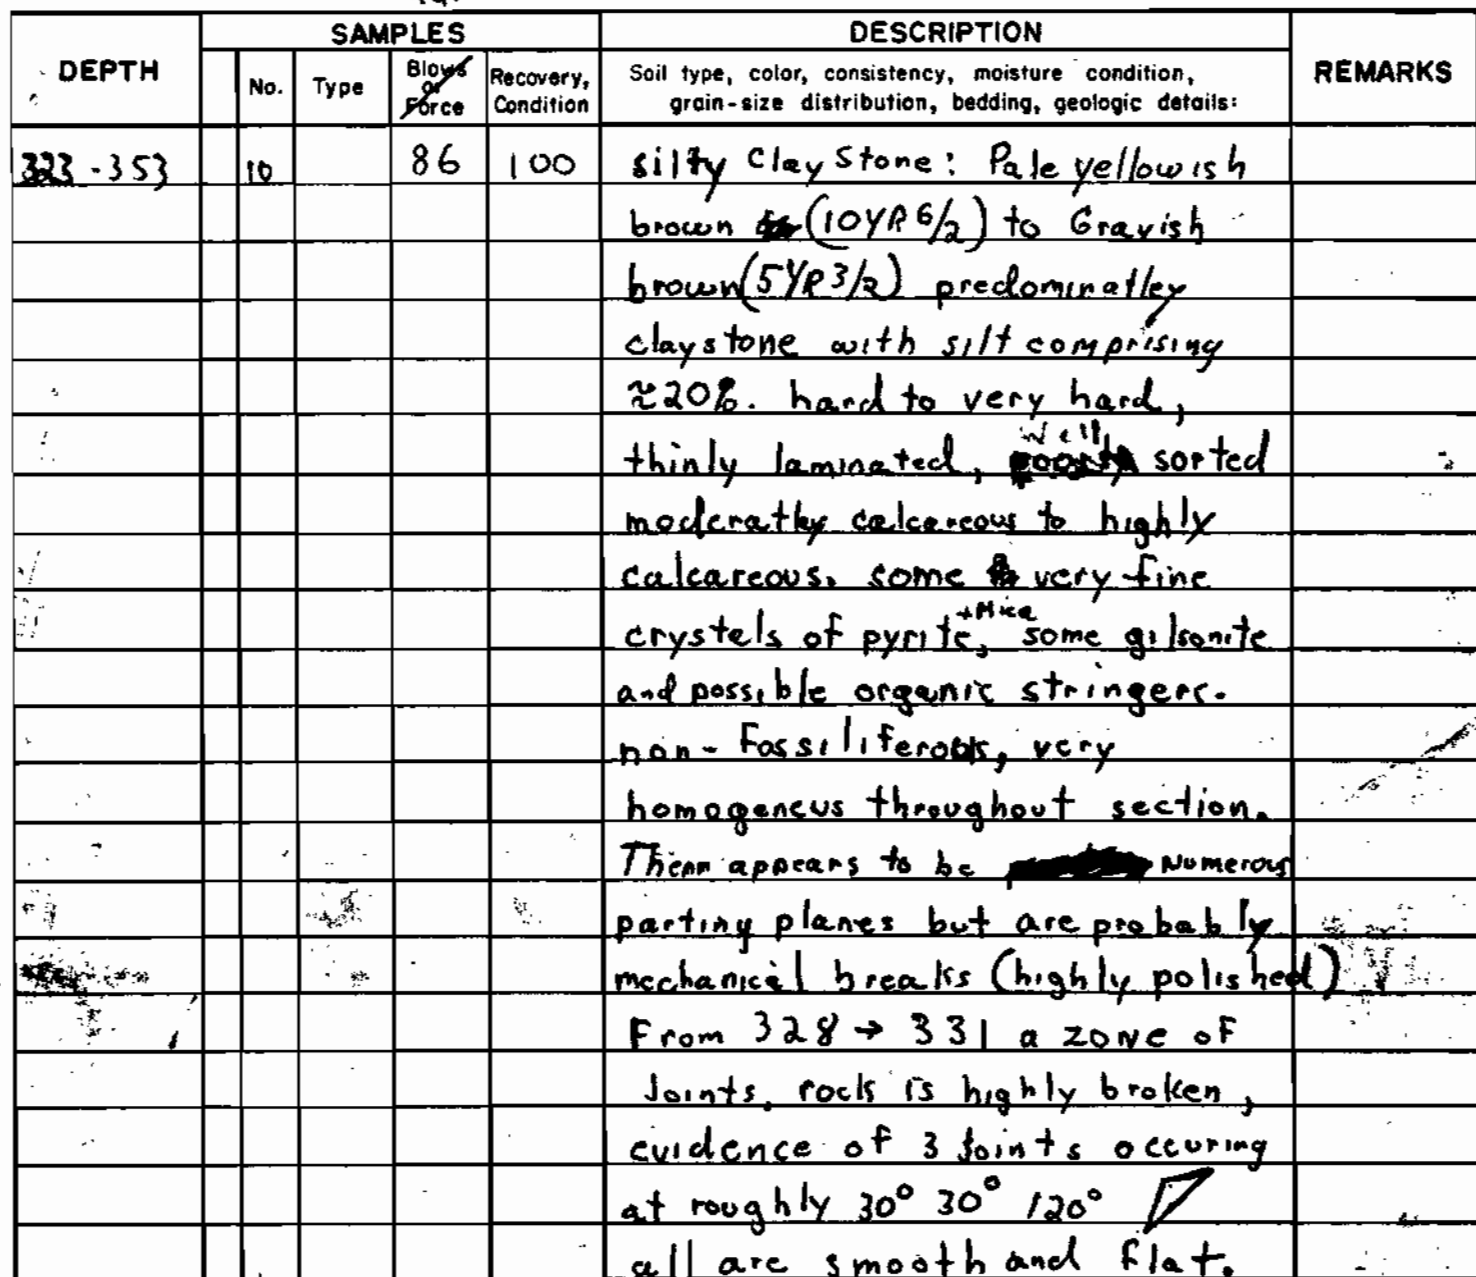 SAMPLES
DESCRIPTION
DEPTH
No.
Type
Blows
or
Force
Recovery,
Condition
Soil type, color, consistency, moisture condition,
grain-size distribution, bedding, geologic details:
REMARKS
323 - 353 10 86 100 silty Clay Stone: Pale yellowish
brown (10YR 6/2) to Grayish
brown (5YR 3/2) predominatley
claystone with silt comprising
≈20%. hard to very hard,
well
thinly laminated, poorly sorted
moderatley calcareous to highly
calcareous. some very fine
+Mica
crystels of pyrite, some gilsonite
and possible organic stringers.
non-Fossiliferous, very
homogeneus throughout section.
appears to be Numerous
parting planes but are probably
mechanical breaks (highly polished)
From 328 → 331 a zone of
Joints, rock is highly broken,
evidence of 3 Joints occuring
at roughly 30° 30° 120°
all are smooth and flat.